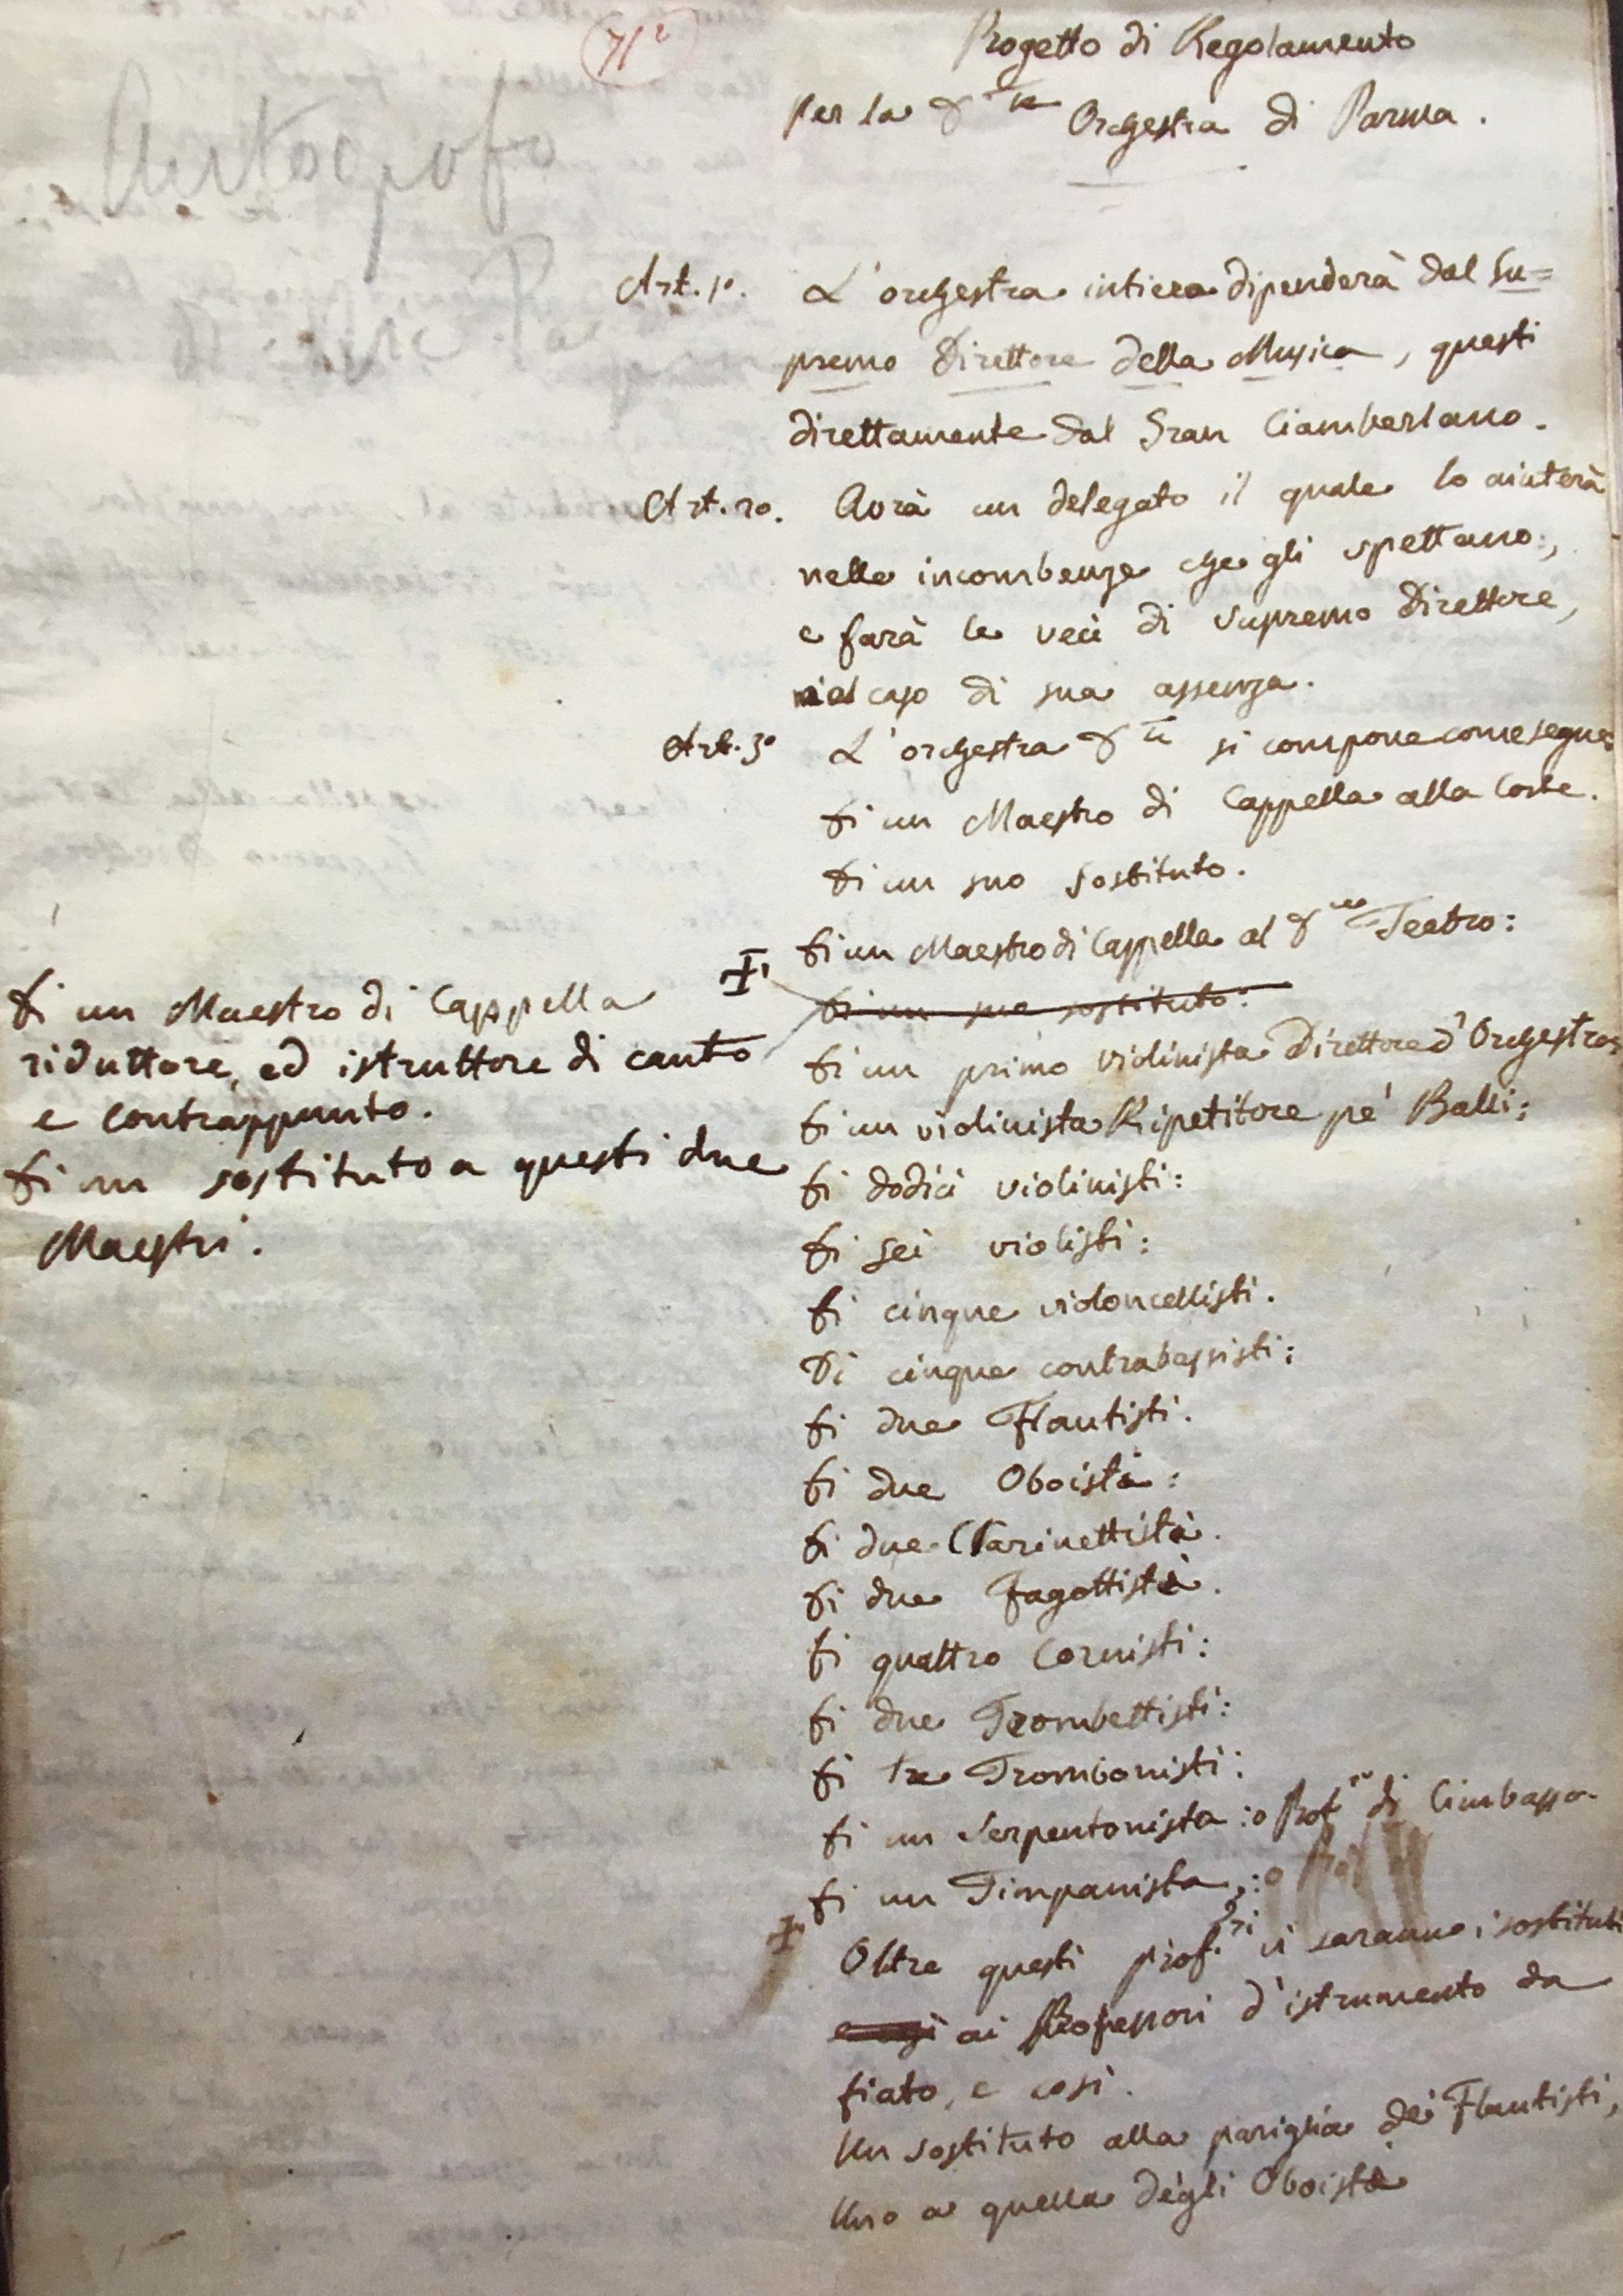 71²
Progetto di Regolamento
per la D.le Orchestra di Parma.
Autografo
Art. 1º. L'orchestra intiera dipenderà dal Su=
premo Direttore della Musica, questi
direttamente dal Gran Ciamberlano.
Art. 2o. Avrà un delegato il quale lo aiuterà
nelle incombenze che gli spettano,
e farà le veci di supremo Direttore,
nel caso di sua assenza.
Art. 3º L'orchestra D.le si compone come segue
Di un Maestro di Cappella alla Corte.
Di un suo sostituto.
Di un Maestro di Cappella al D.le Teatro:
Di un suo sostituto:
Di un Maestro di Cappella
riduttore, ed istruttore di canto
e contrappunto.
Di un sostituto a questi due
Maestri.
Di un primo violinista Direttore d'Orchestra
Di un violinista Ripetitore pe' Balli;
Di dodici violinisti:
Di sei violisti:
Di cinque violoncellisti.
Di cinque contrabassisti;
Di due Flautisti.
Di due Oboisti:
Di due Clarinettisti.
Di due Fagottisti.
Di quattro Cornisti:
Di due Trombettisti:
Di tre Trombonisti:
Di un Serpentonista: o Prof.re di Cimbasso.
Di un Timpanista,: o Prof
Oltre questi prof.ri vi saranno i sostituti
ai Professori d'istrumento da
fiato, e così.
Un sostituto alla pariglia dei Flautisti,
Uno a quella degli Oboisti